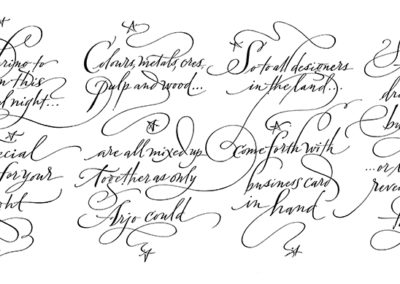 to
this
night...
for your
Colours, metals, ores,
Pulp and wood...
are all mixed up
Together as only
Arjo could
So to all designers
in the land...
Come forth with
business card
in hand
...or